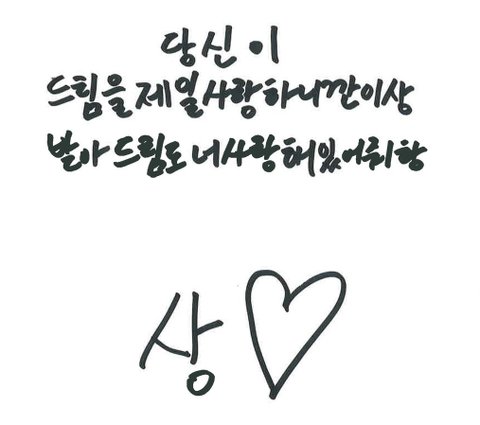 당신이
드림을 제일 사랑하니깐 이상
받아 드림도 너 사랑해 있어줘 항
상♡